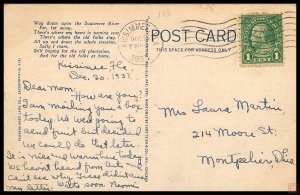 'Way down upon the Suwannee River
Far, far away,
There's where my heart is turning ever
There's where the old folks stay.
All up and down the whole creation,
Sadly I roam,
Still longing for the old plantation,
And for the old folks at home.
POST CARD
THIS SPACE FOR ADDRESS ONLY
1 CENT 1
Kissimee, Fla
Dec. 20, 1937.
Dear Mom:
How are you? I
am mailing you a box
today. We were going to
send fruit but decided we
could do that later.
It is nice and warm here today
we havent heard from
can't see why
my letter. Write soon.
Mrs Laura Martin
214 Moore St.
Montpelier, Ohio